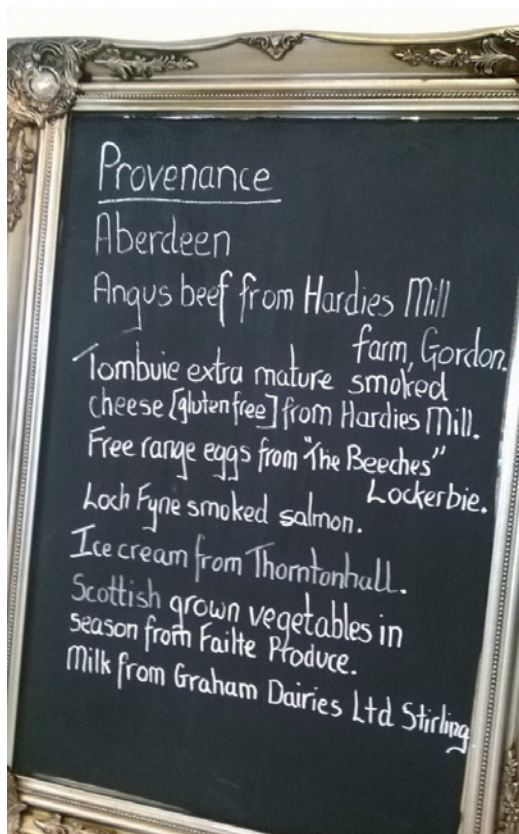 Provenance
Aberdeen
Angus beef from Hardies Mill
farm, Gordon.
Tombuie extra mature smoked
cheese [gluten free] from Hardies Mill.
Free range eggs from "The Beeches"
Lockerbie.
Loch Fyne smoked salmon.
Ice cream from Thorntonhall.
Scottish grown vegetables in
season from Failte Produce.
Milk from Graham Dairies Ltd Stirling